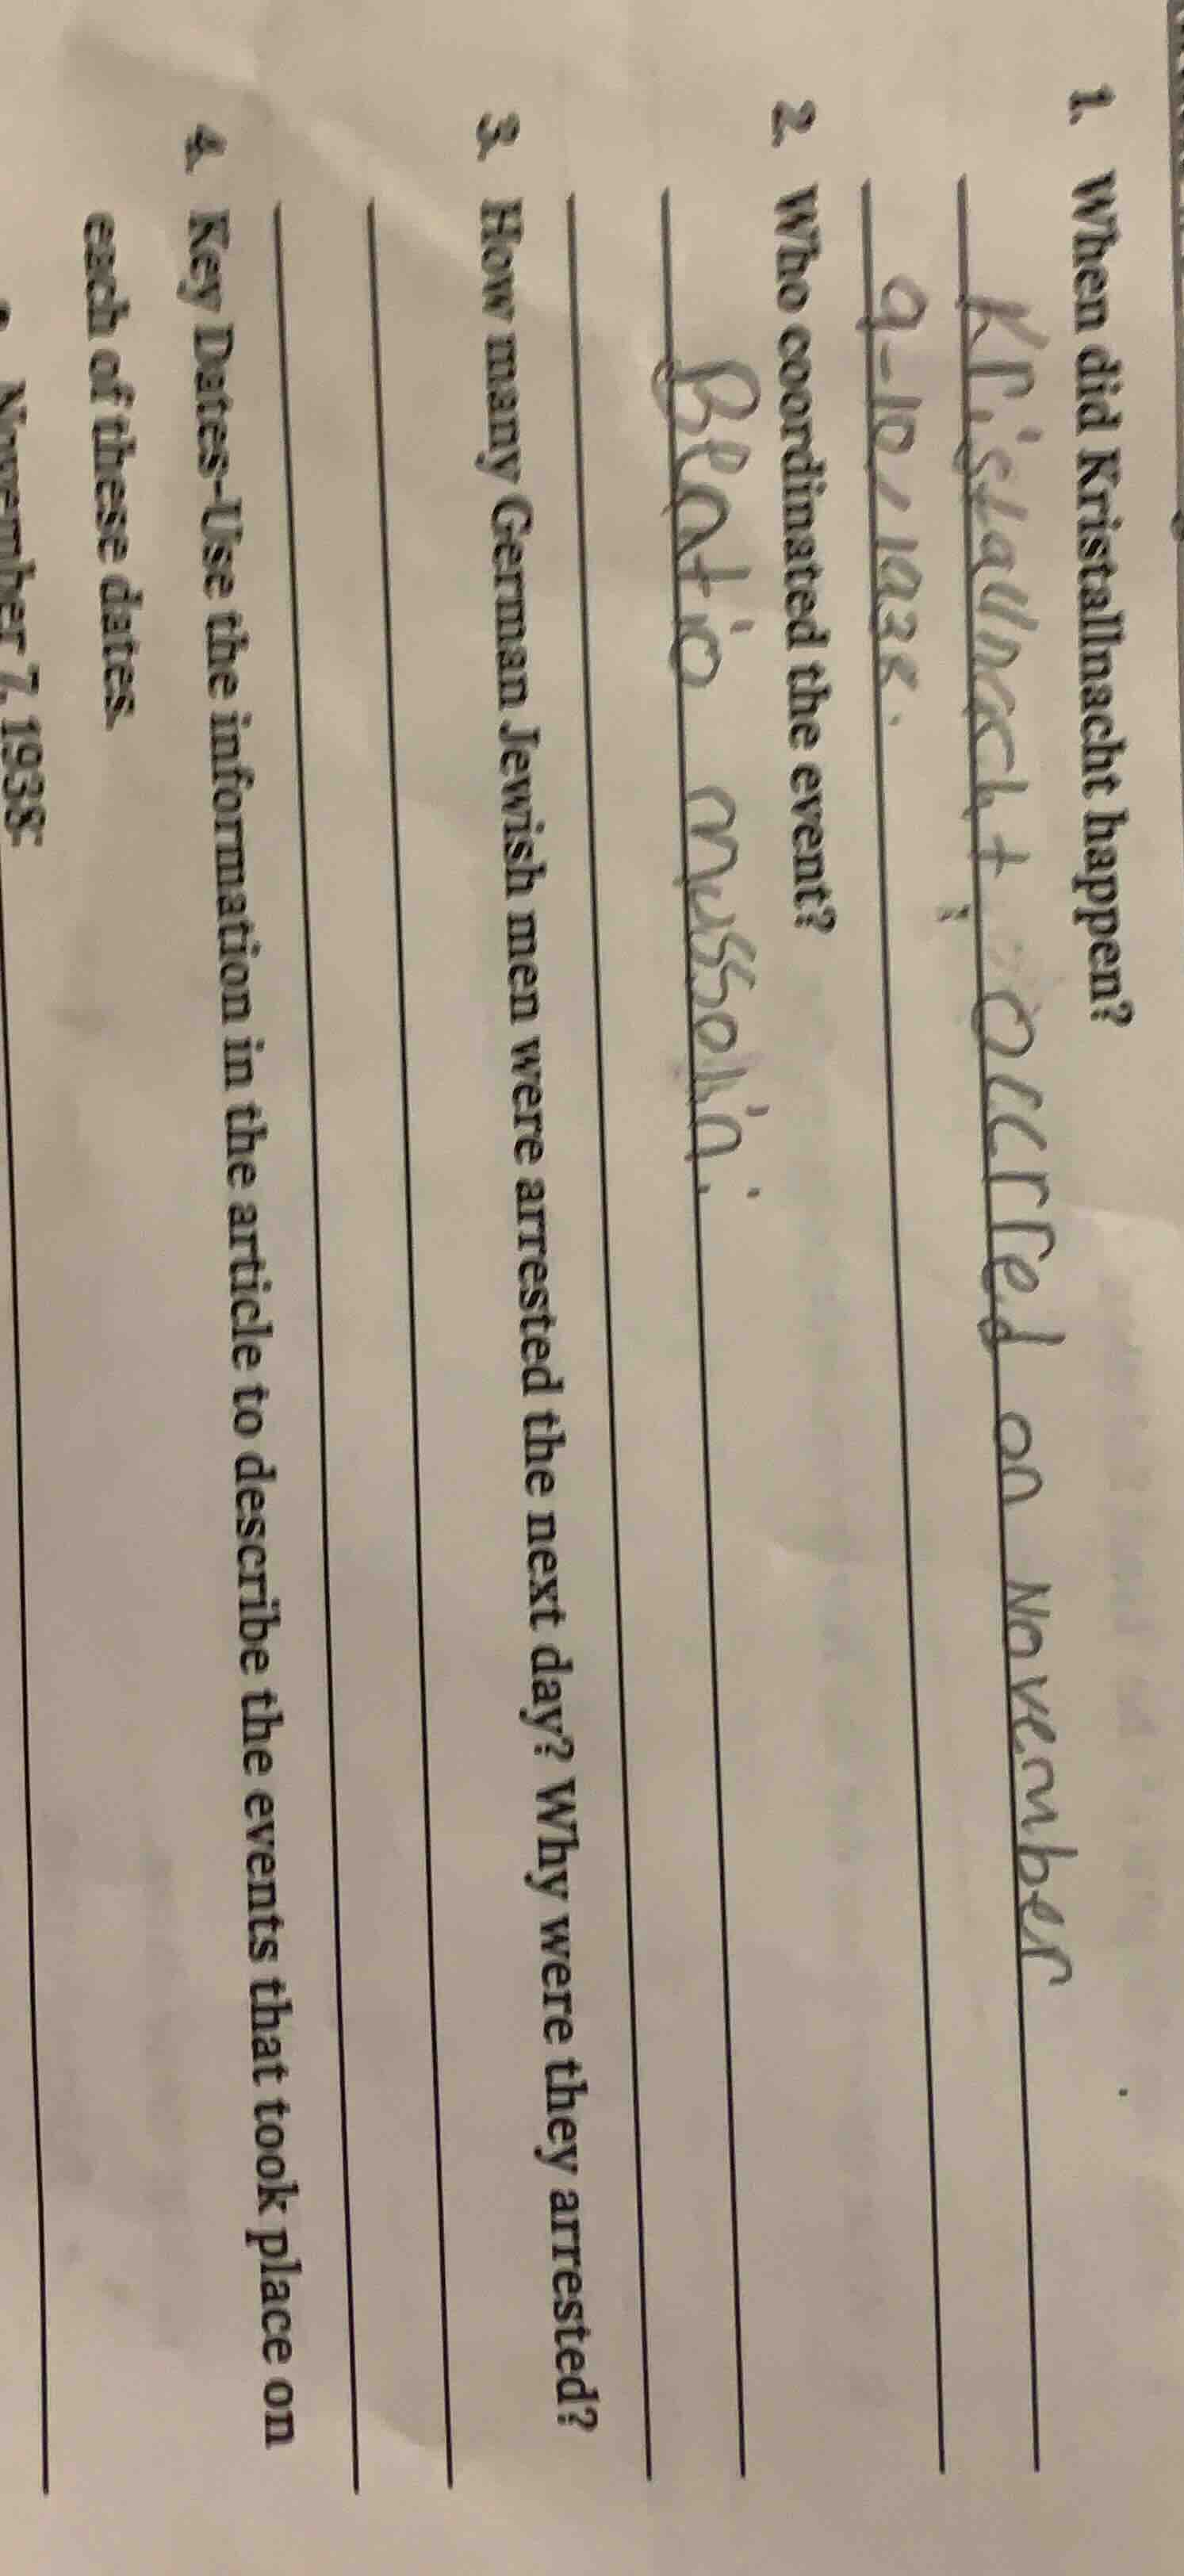 1. When did Kristallnacht happen?
Kristallnacht occrred on November
9-10, 1938.
2. Who coordinated the event?
Benatio mussolini.
3. How many German Jewish men were arrested the next day? Why were they arrested?
4. Key Dates-Use the information in the article to describe the events that took place on
each of these dates.
November 7, 1938: